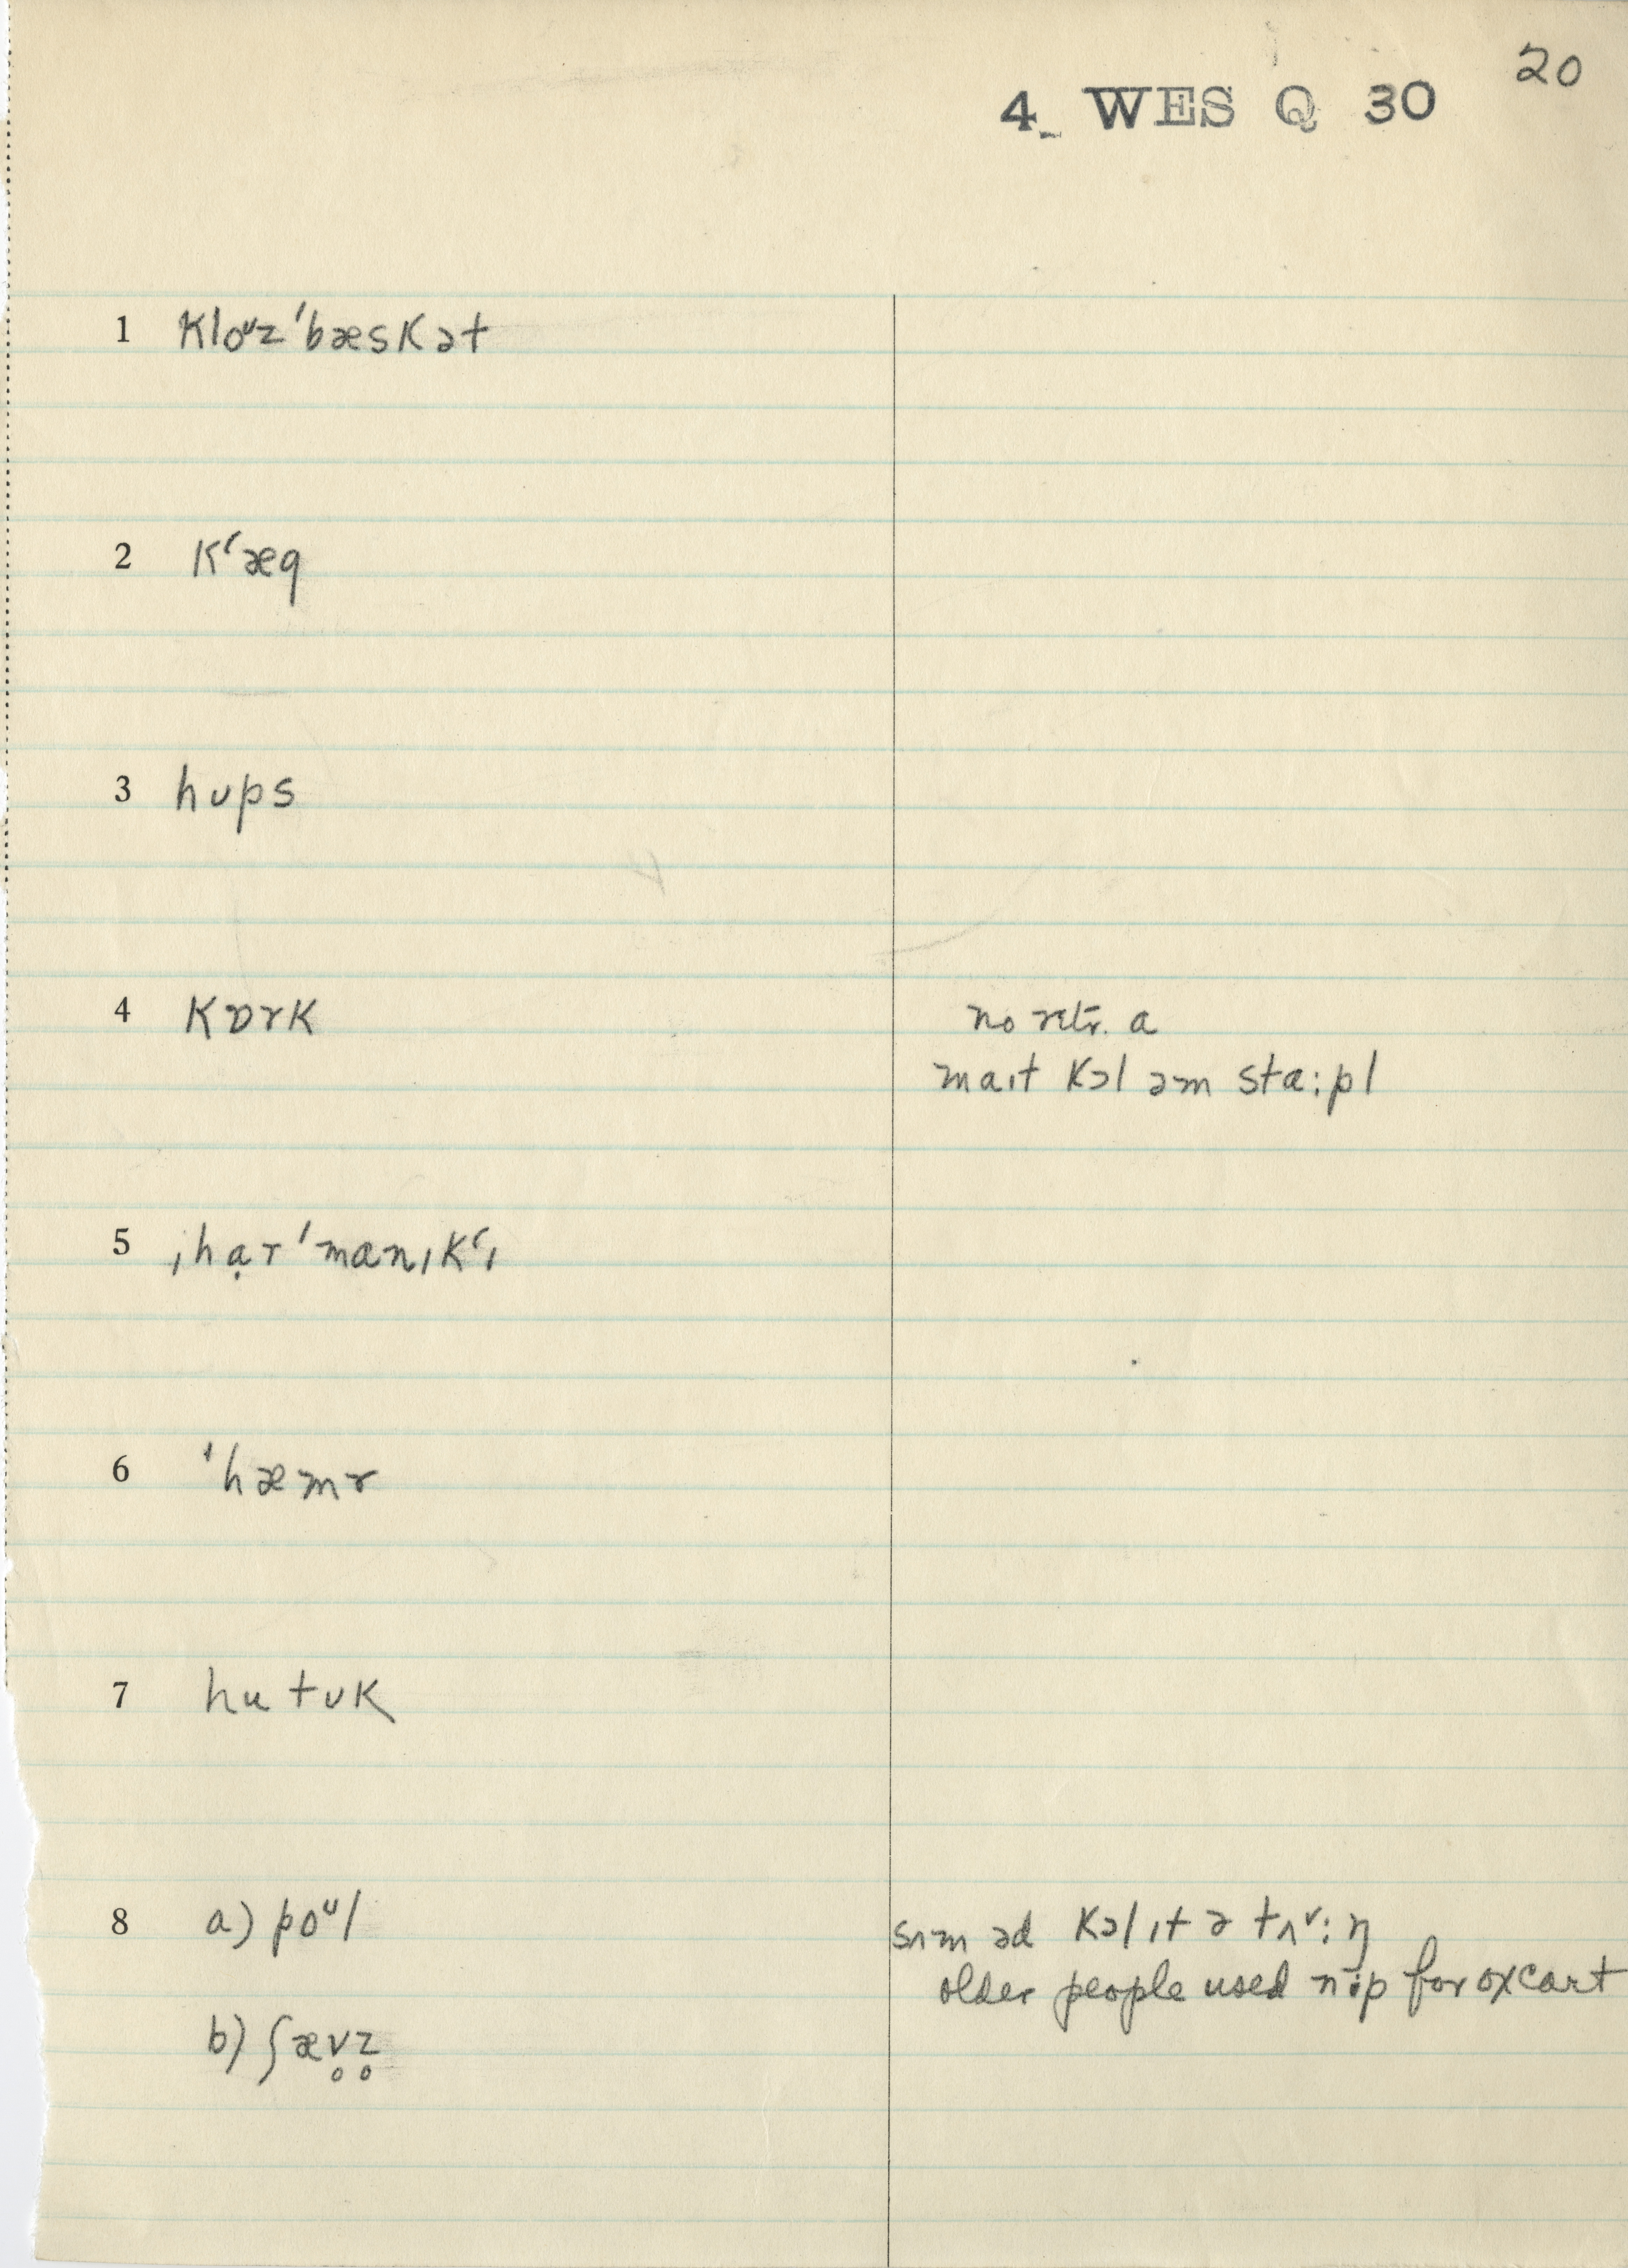 20
4 WES Q 30
1 kloᵘz ˈbæskət
2 kʽæg
3 hʊps
4 kɒrk
no retr. a
maɪt kɔl əm sta:pl
5 ˌhạr ˈmanɪkʽɪ
6 ˈhæmɚ
7 hu tʊk
8 a) poᵘl
sʌm əd kɔl ɪt ə tʌ˅:ŋ
older people used nip for oxcart
b) ʃæv̥z̥